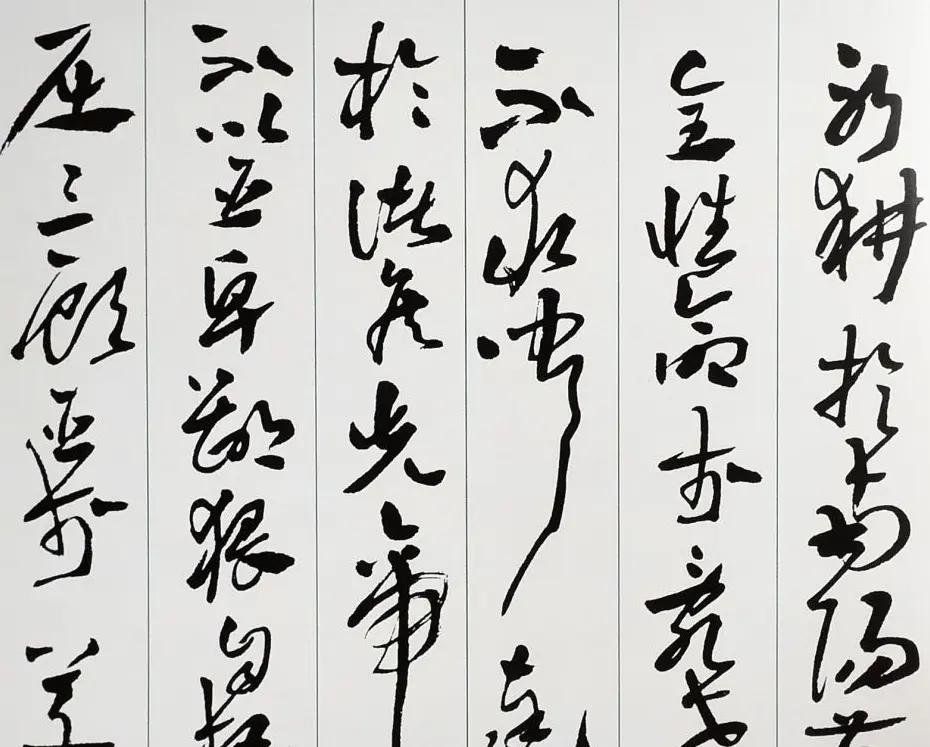 躬耕於南陽苟
全性命於亂世
不求聞達
於諸侯先帝
不以臣卑鄙猥自枉
屈三顧臣於草